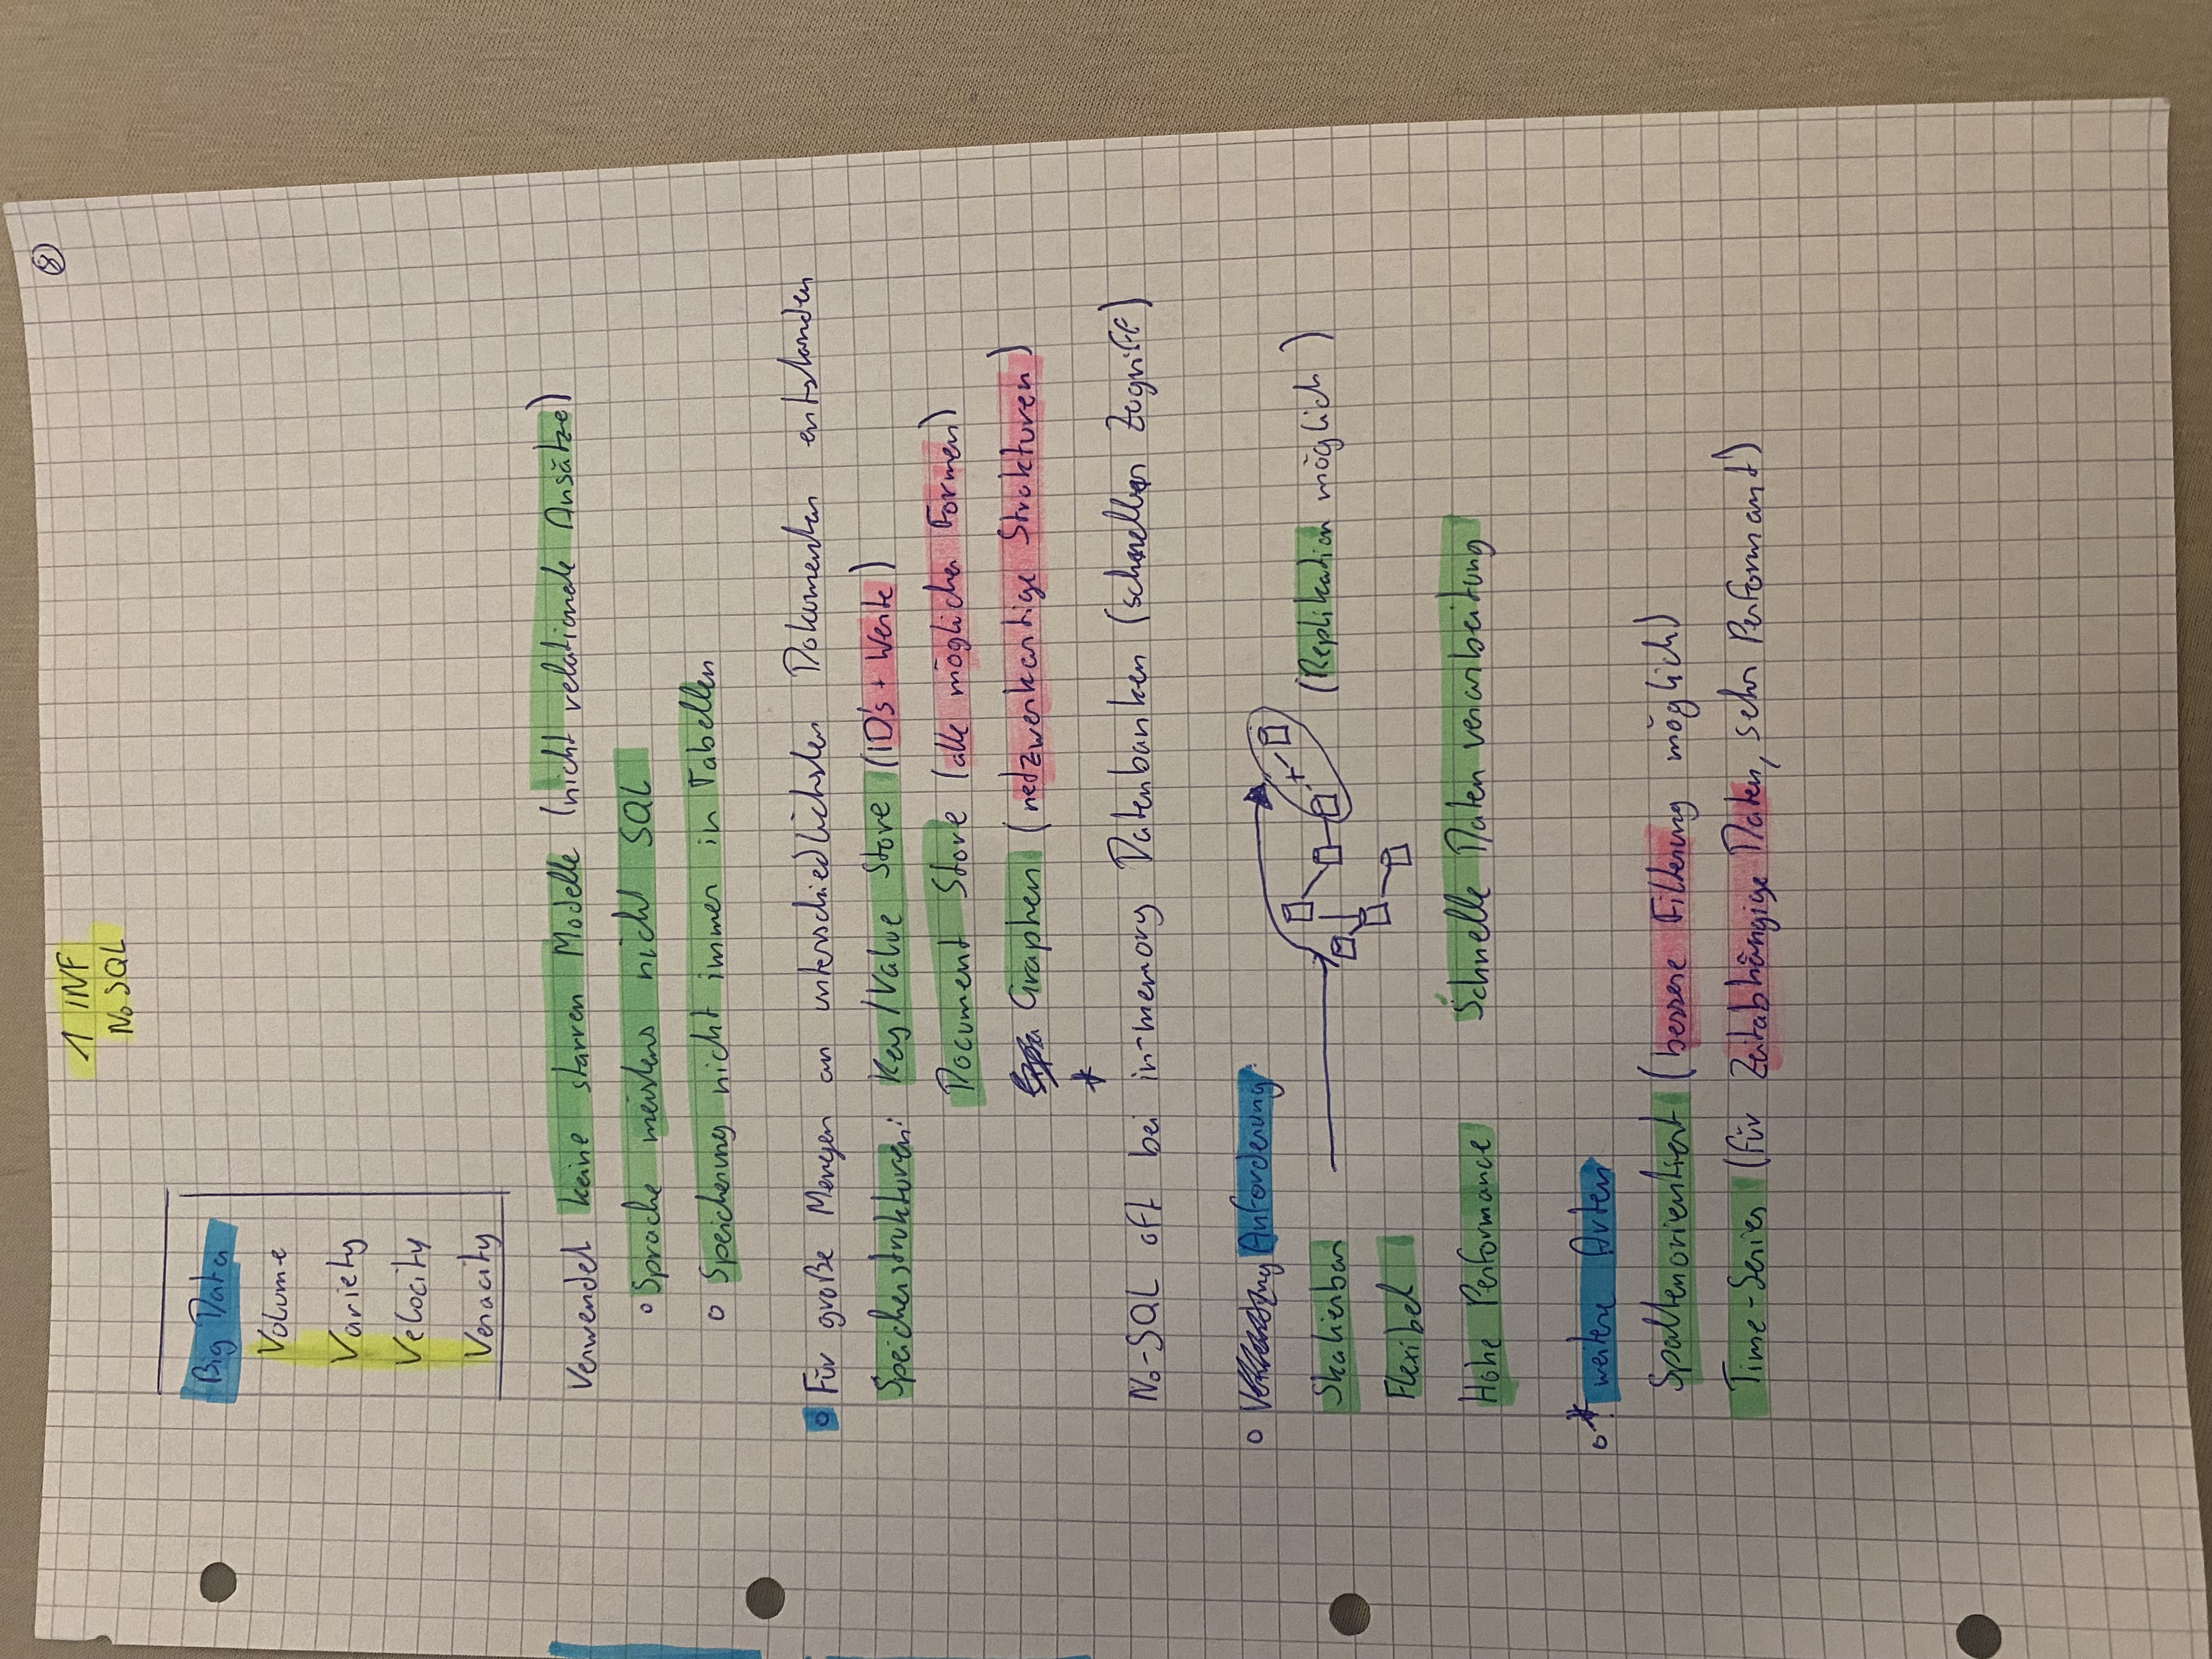 8
1 INF
No SQL
Big Data
Volume
Variety
Velocity
Veracity
Verwendet keine starren Modelle (nicht relationale Ansätze)
Sprache meistens nicht SQL
Speicherung nicht immer in Tabellen
Für große Mengen an unterschiedlichsten Dokumenten entstanden
Speicherstrukturen: Key/Value Store (ID's + Werte)
Document Store (alle möglichen Formen)
Graphen (netzwerkartige Strukturen)
*
No-SQL oft bei in-memory Datenbanken (schneller Zugriff)
Anforderung:
Skalierbar (Replikation möglich)
+
Flexibel
Hohe Performance Schnelle Datenverarbeitung
* weitere Arten
Spaltenorientiert (bessere Filterung möglich)
Time-Series (für Zeitabhängige Daten, sehr Performant)